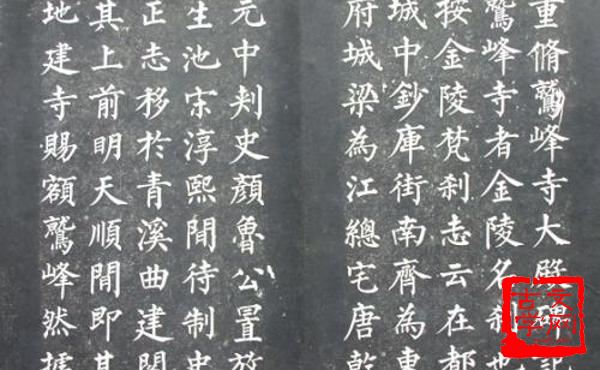 重脩鷲峰寺大殿碑記
鷲峰寺者金陵名刹也
按金陵梵刹志云在都
城中鈔庫街南齊為東
府城梁為江總宅唐乾
元中刺史顏魯公置放
生池宋淳熙間待制史
正志移於青溪曲建閣
其上前明天順間即其
地建寺賜額鷲峰然據
古文
学网